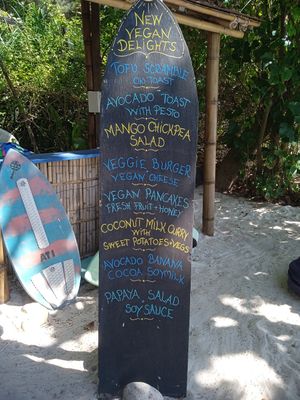 NEW
VEGAN
DELIGHTS
TOFU SCRAMBLE
ON TOAST
AVOCADO TOAST
WITH PESTO
MANGO CHICKPEA
SALAD
VEGGIE BURGER
VEGAN CHEESE
VEGAN PANCAKES
FRESH FRUIT + HONEY
COCONUT MILK CURRY
WITH
SWEET POTATOES + VEGS
AVOCADO BANANA
COCOA SOYMILK
PAPAYA SALAD
SOY SAUCE